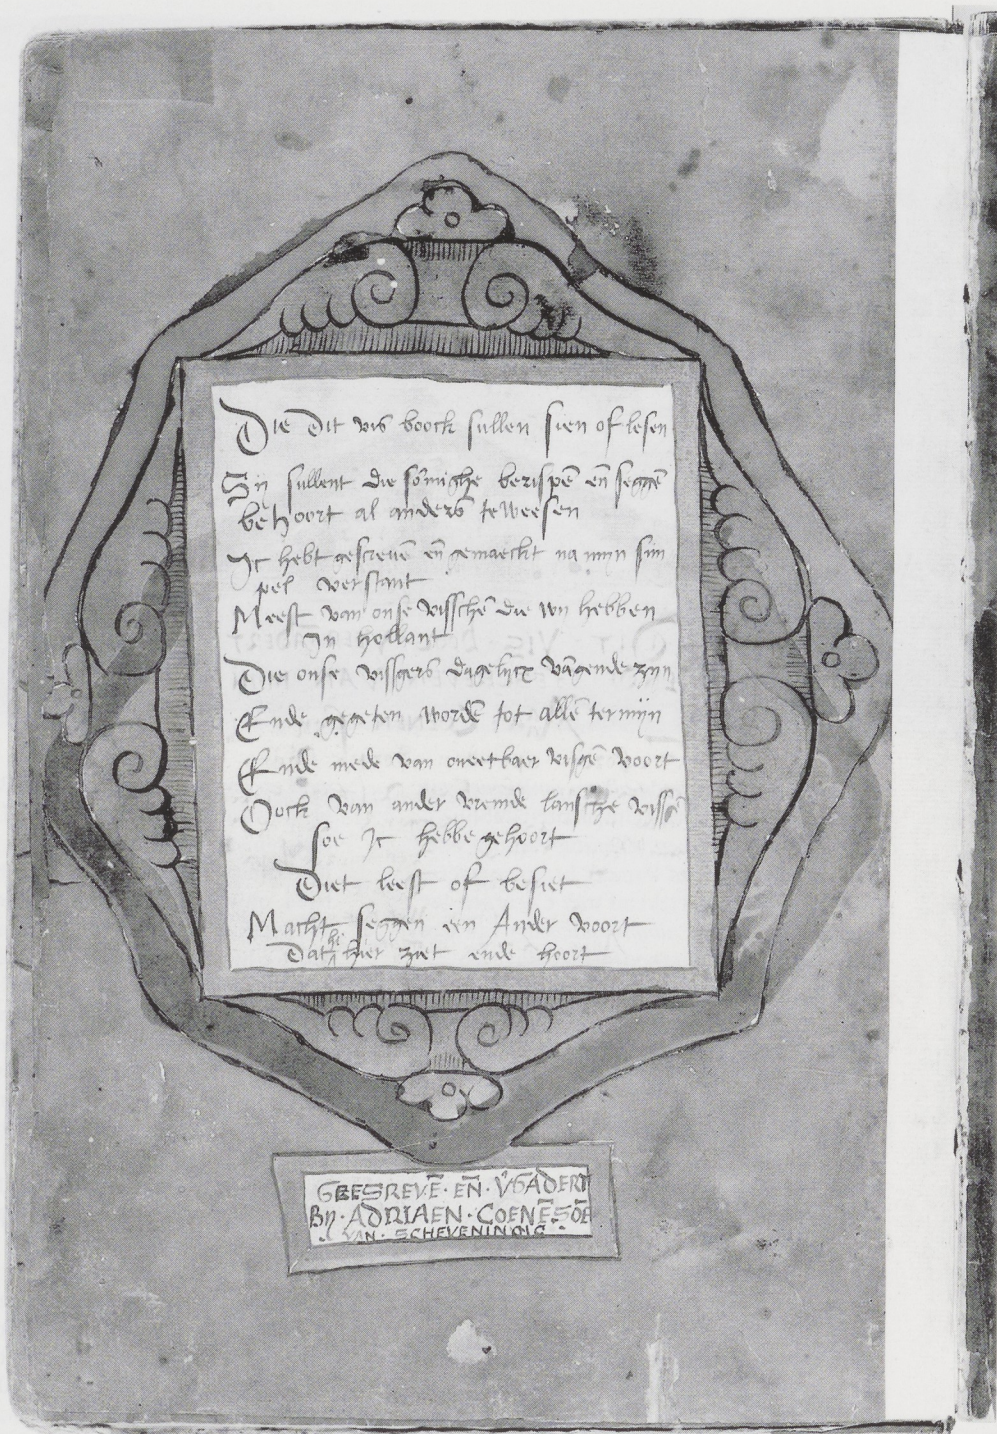 Die dit vis boock sullen sien of lesen
Sij sullent die sōmighe berispē eñ seggē
behoort al anders te weesen
Jc hebt gescreuē eñ gemaeckt na mijn sim
pel verstant
Meest van onse visschē die wij hebben
In hollant
Die onse vissgers dagelijcx vāgende zijn
Ende gegeten wordē tot allē termijn
Ende mede van oneetbaer visgē voort
Oock van ander vremde lansche vissē
soe Jc hebbe gehoort
Diet leest of besiet
Macht seggen een Ander voort
Dat he hier ziet ende hoort
GEESREVĒ · EÑ · VGADERT
Bij · ADRIAEN · COENĒ · SOĒ
VAN · SCHEVENINGIG